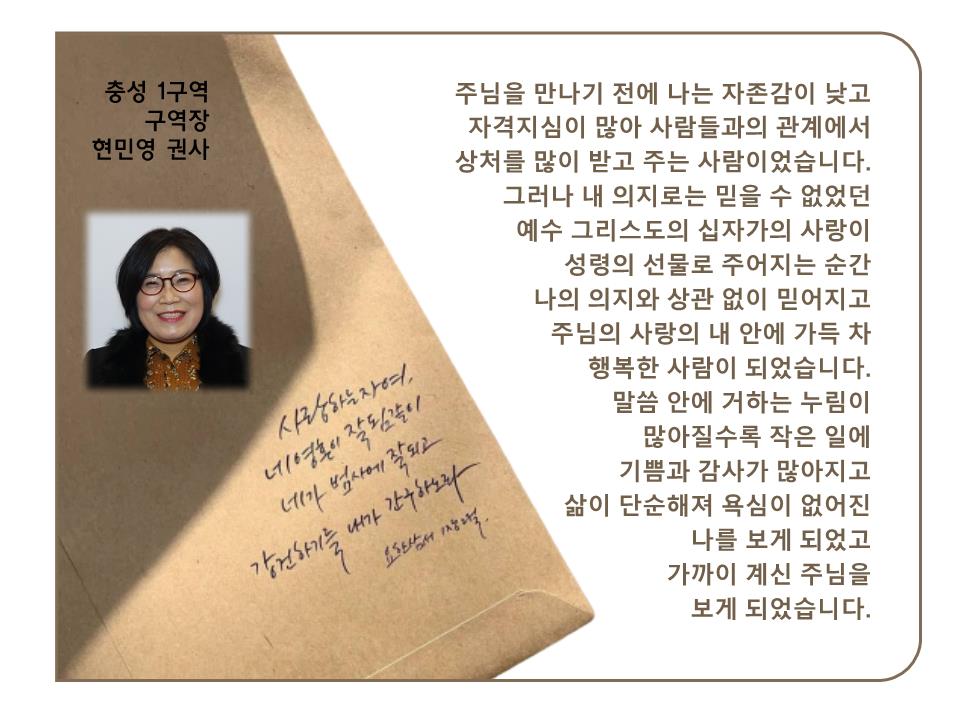 충성 1구역
구역장
현민영 권사
주님을 만나기 전에 나는 자존감이 낮고
자격지심이 많아 사람들과의 관계에서
상처를 많이 받고 주는 사람이었습니다.
그러나 내 의지로는 믿을 수 없었던
예수 그리스도의 십자가의 사랑이
성령의 선물로 주어지는 순간
나의 의지와 상관 없이 믿어지고
주님의 사랑의 내 안에 가득 차
행복한 사람이 되었습니다.
말씀 안에 거하는 누림이
많아질수록 작은 일에
기쁨과 감사가 많아지고
삶이 단순해져 욕심이 없어진
나를 보게 되었고
가까이 계신 주님을
보게 되었습니다.
사랑하는자여,
네 영혼이 잘됨같이
네가 범사에 잘되고
강건하기를 내가 간구하노라
요한삼서 1장2절.